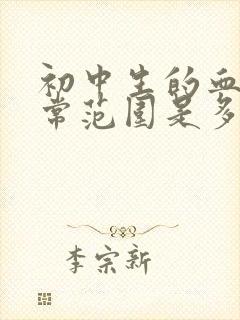 初中生的血
常范围是多
李宗新